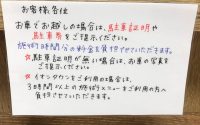 お客様各位
お車でお越しの場合は、駐車証明や
駐車券をご提示ください。
施術時間分の料金を負担させていただきます。
☆駐車証明が無い場合は、お車の写真を
ご提示ください。
☆イオンタウンをご利用の場合は、
3時間以上の施術メニューをご利用の方へ
負担させていただきます。